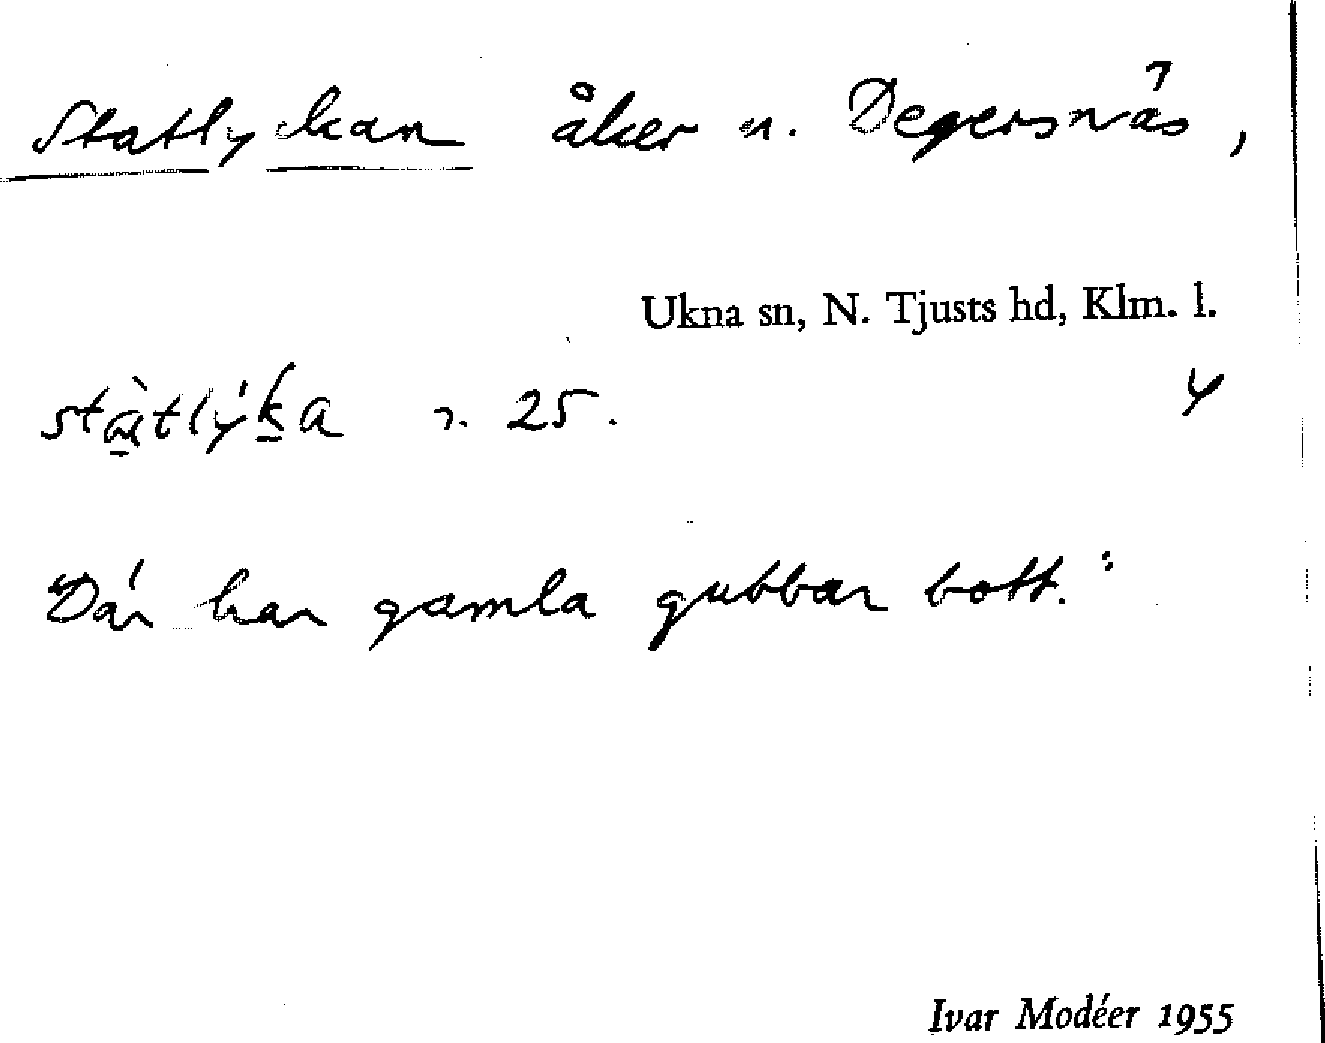 Statlyckan åker n. Degersnäs,
Ukna sn, N. Tjusts hd, Klm. l.
stàtlýka 25.
"Där har gamla gubbar bott."
Ivar Modéer 1955